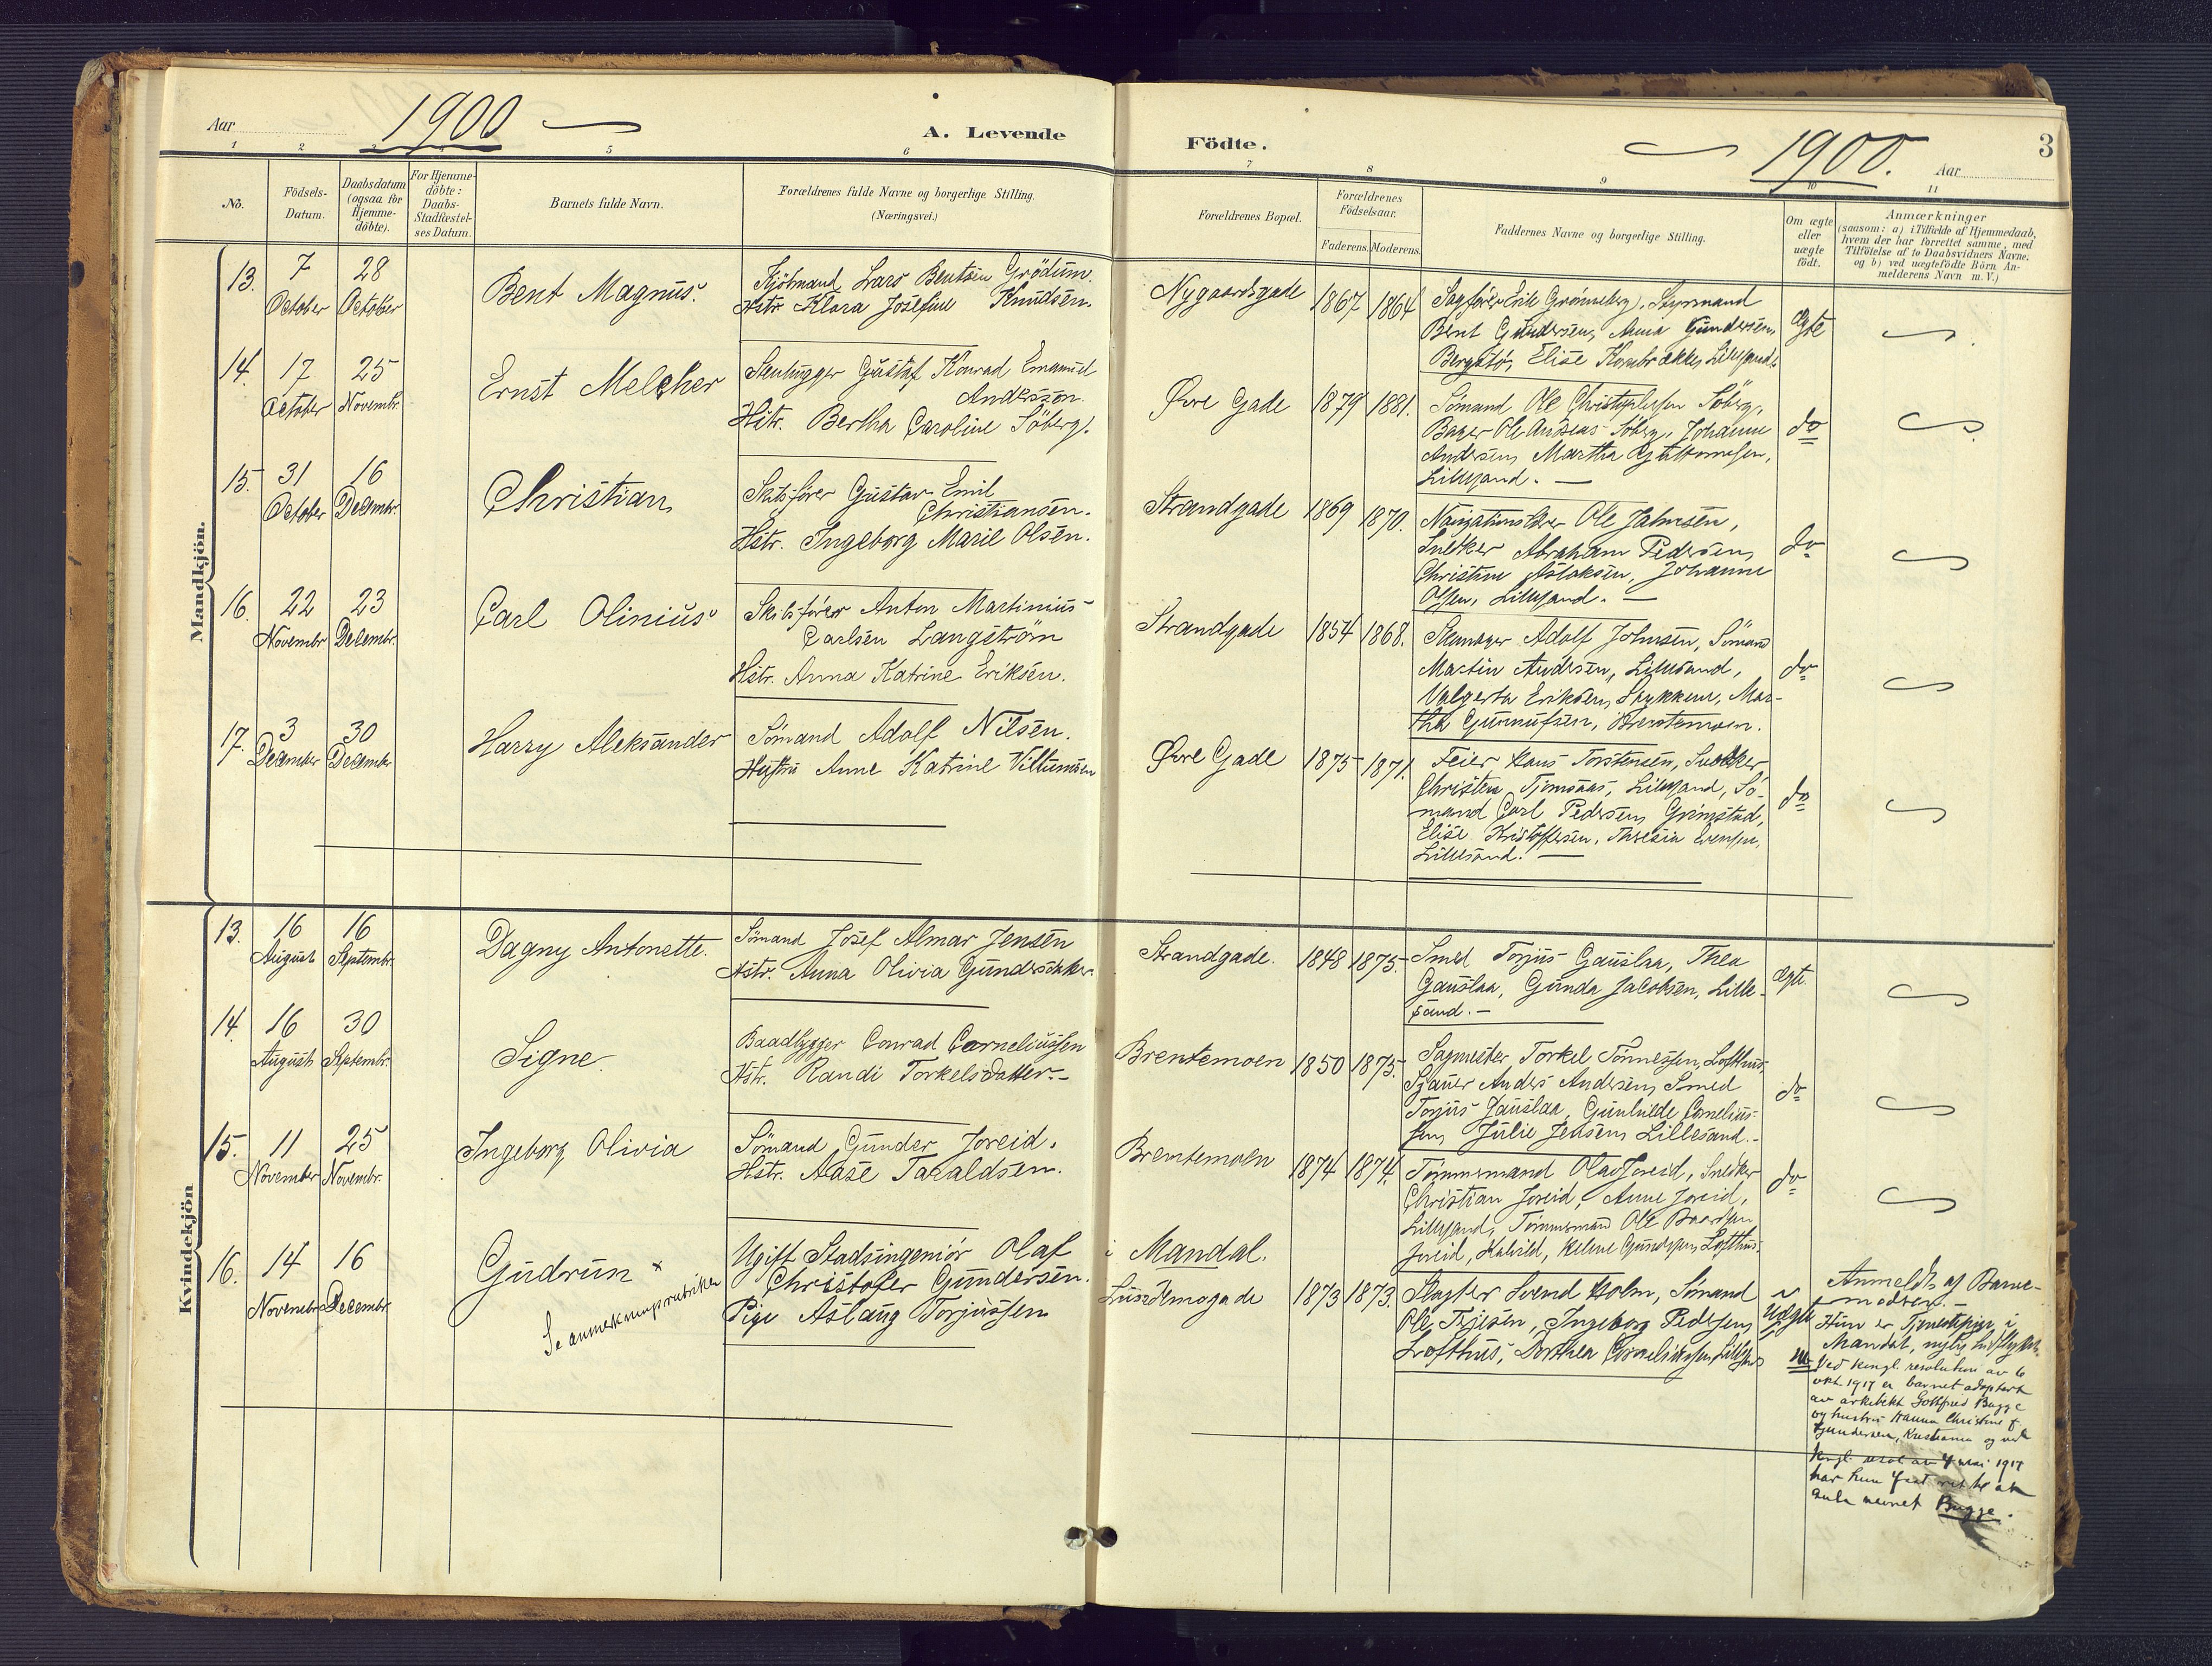 Aar 1900
A. Levende
Födte.
1900. Aar
3
1 2 3 4 5 6 7 8 9 10 11
No.
Födsels-Datum.
Daabsdatum (ogsaa for Hjemme-döbte).
For Hjemme-döbte: Daabs-Stadfæstel-ses Datum.
Barnets fulde Navn.
Forældrenes fulde Navne og borgerlige Stilling.
(Næringsvei.)
Forældrenes Bopæl.
Forældrenes Födselsaar.
Faderens. Moderens.
Faddernes Navne og borgerlige Stilling.
Om ægte eller uægte födt.
Anmærkninger
(saasom: a) i Tilfælde af Hjemmedaab,
hvem der har forrettet samme, med
Tilföielse af to Daabsvidners Navne.
og b) ved uægtefödte Börn An-
melderens Navn m. V.)
Mandkjön.
13. 7 October 28 October
Bent Magnus.
Kjöbmand Lars Bentsen Grödum.
Hstr. Klara Josefine Knudsen.
Nygaardsgade 1867 1864
Sagförer Erik Grønneberg, Styrmand
Bent Gundersen, Anna Gundersen,
Bergstø, Elise Kornbrække, Lillesand.
Ægte
14. 17 October 25 Novembr.
Ernst Melcher
Stenhugger Gustaf Konrad Emanuel
Anderssen.
Hstr. Bertha Caroline Söberg.
Øvre Gade 1879 1881.
Sömand Ole Christophersen Söberg,
Bager Ole Andreas Söberg, Johanne
Andersen, Martha Guttormsen,
Lillesand. —
do
15. 31 October 16 Decembr.
Christian
Skibsfører Gustav Emil
Christiansen.
Hstr. Ingeborg Marie Olsen.
Strandgade 1869 1870.
Navigationslærer Ole Jahnsen,
Snedker Abraham Pedersen,
Christine Aslaksen, Johanne
Olsen, Lillesand. —
do
16. 22 Novembr 23 Decembr.
Carl Olinius
Skibsfører Anton Martinius
Carlsen Langström
Hstr. Anna Katrine Eriksen.
Strandgade 1854 1868.
Skomager Adolf Johnsen, Sömand
Martin Andersen, Lillesand,
Valgerta Eriksen, Stykkene, Mar-
tha Gunnufsen, Brentemoen.
do
17. 3 December 30 Decembr
Harry Aleksander
Sömand Adolf Nilsen.
Hustru Anne Katrine Villumsen
Øvre Gade 1875 1871.
Feier Hans Torstensen, Snedker
Christen Tjomsaas, Lillesand, Sö-
mand Carl Pedersen, Grimstad,
Elise Kristoffersen, Theresia Evensen,
Lillesand. —
do
Kvindekjön
13. 16 August 16 Septembr.
Dagny Antonette.
Sömand Josef Almar Jensen
Hstr. Anna Olivia Gundersdatter
Strandgade. 1848 1875.
Smed Torjus Gauslaa, Thea
Gauslaa, Gunda Jacobsen, Lille-
sand. —
Ægte
14. 16 August 30 Septembr.
Signe.
Baadbygger Conrad Corneliussen
Hstr. Randi Torkelsdatter. -
Brentemoen 1850 1875.
Sagmester Torkel Tönnessen, Lofthus,
Sjauer Anders Andersen, Smed
Torjus Gauslaa, Gunhilde Cornelius-
sen, Julie Jensen, Lillesand. -
do
15. 11 November 25 Novembr.
Ingeborg Olivia
Sömand Gunder Joreid.
Hstr. Aase Taraldsen.
Brentemoen 1874 1874.
Tömmermand Olav Joreid, Snedker
Christian Joreid, Anne Joreid,
Lillesand, Tömmermand Ole Baardsen
Joreid, Kalvild, Helene Gundersen, Lofthus.
do
16. 14 Novembr. 16 Decembr.
Gudrun ×
Se anmerkningsrubriken
Ugift Stadsingeniör Olaf
Christofer Gundersen.
Pige Aslaug Torjussen
i Mandal.
1873 1873.
Slagter Svend Holm, Sömand
Ole Terjesen, Ingeborg Pedersen,
Lofthus, Dorthea Corneliussen, Lillesand
Uægte
Anmeldt af Barne-
moderen. —
Hun er Tjenestepige i
Mandal, nylig hidflyttet.
Ved kongl. resolution av 6
okt 1917 er barnet adoptert
av arkitekt Gottfred Bugge
og hustru Hanna Christine f.
Gundersen, Kristiania og ved
kongl. resol av 4 mai 1917
har hun faat ret til at
navnet Bugge.